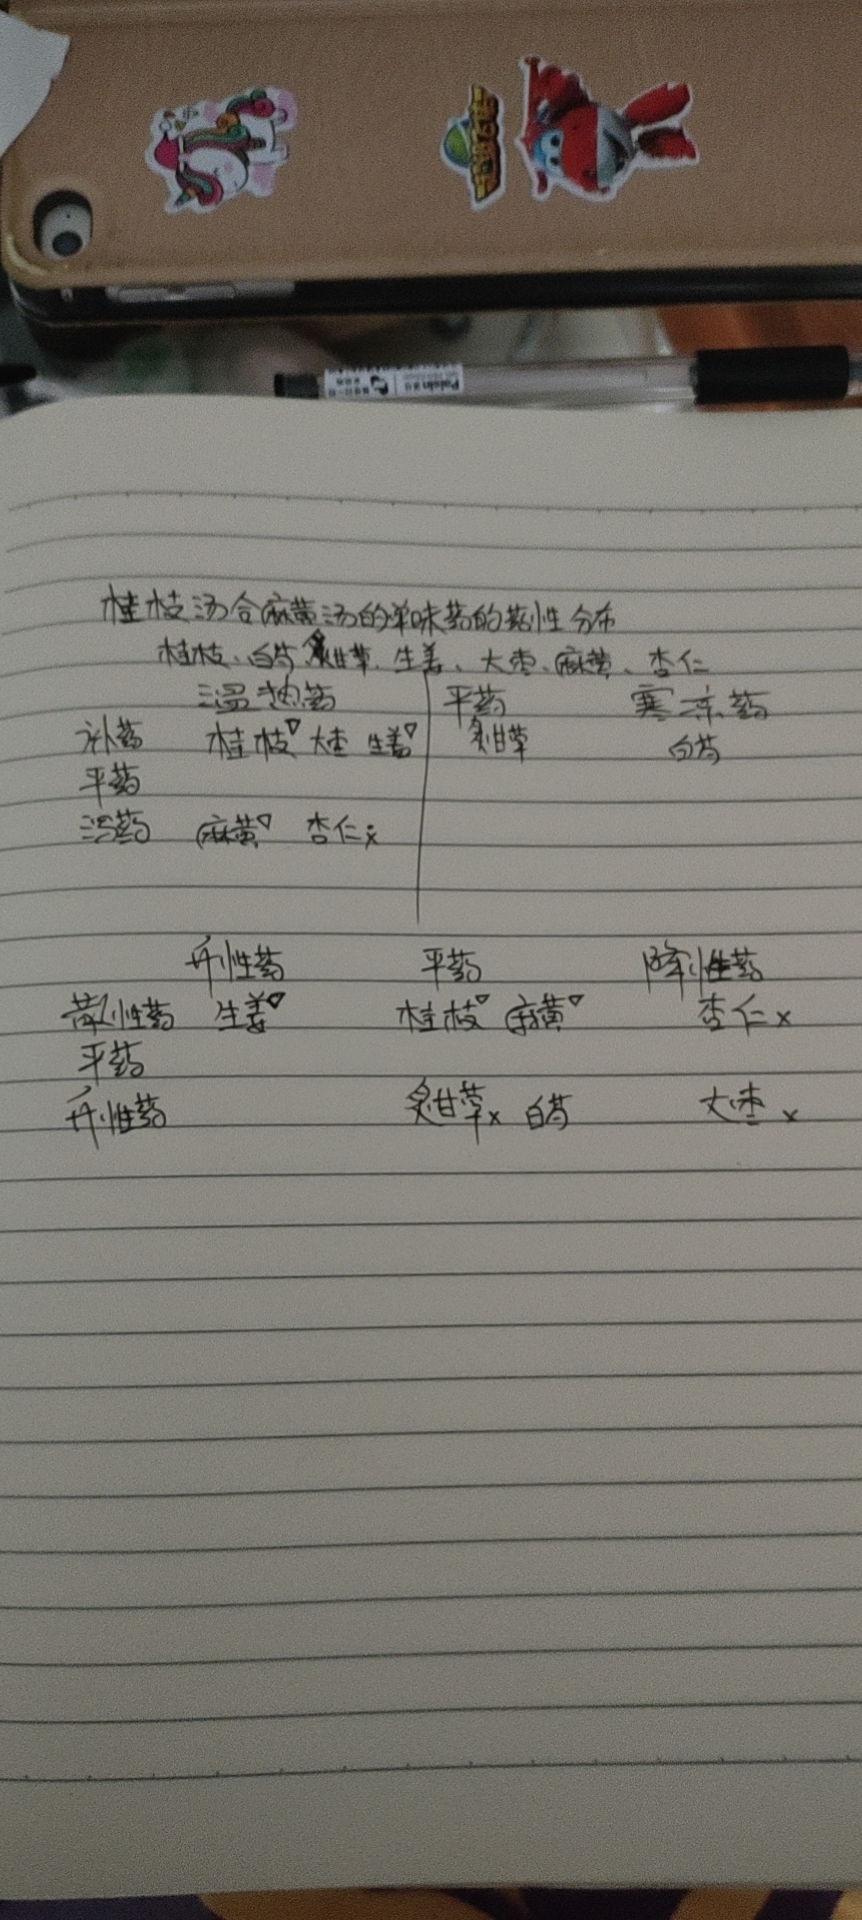 Palsin
桂枝汤合麻黄汤的单味药的药性分布
桂枝、白芍、炙甘草、生姜、大枣、麻黄、杏仁
温热药 平药 寒凉药
补药 桂枝▽ 大枣 生姜▽ 炙甘草 白芍
平药
泻药 麻黄▽ 杏仁x
升性药 平药 降性药
散性药 生姜▽ 桂枝▽ 麻黄▽ 杏仁x
平药
升性药 炙甘草x 白芍 大枣x